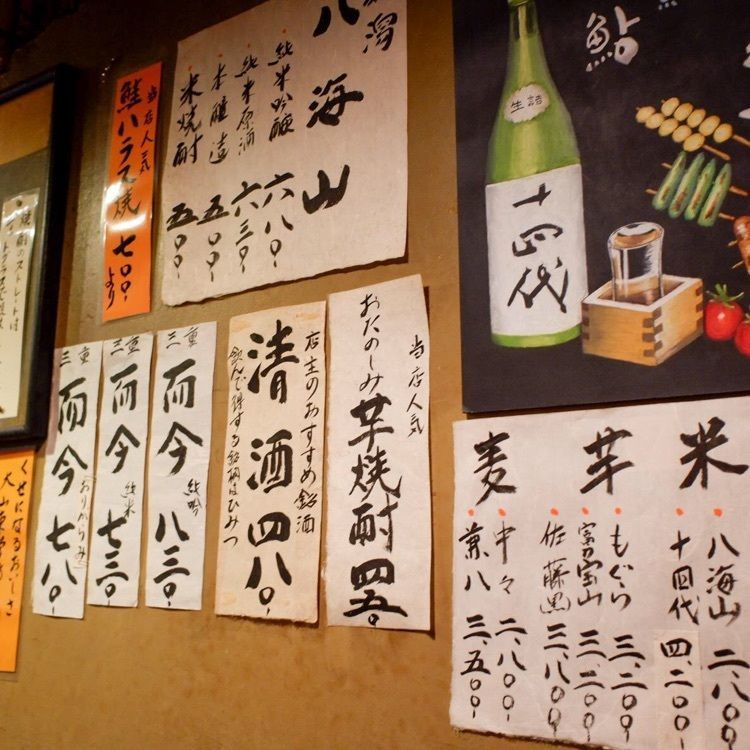 鮎
生詰
十四代
八海山
純米吟醸 六八〇
純米原酒 六三〇
本醸造 五〇〇
米焼酎 五〇〇
当店人気
鮭ハラス焼 七〇〇より
当店人気
おたのしみ 芋焼酎 四五〇
店主のおすすめ銘酒
清酒 四八〇
飲んで得する銘柄はひみつ
三重 而今 純吟 八三〇
三重 而今 純米 七三〇
三重 而今 (おりがらみ) 七八〇
米
八海山 二、八〇〇
十四代 四、二〇〇
芋
もぐら 三、二〇〇
富乃宝山 三、二〇〇
佐藤黒 三、八〇〇
麦
中々 二、八〇〇
兼八 三、五〇〇
くせになるおいしさ